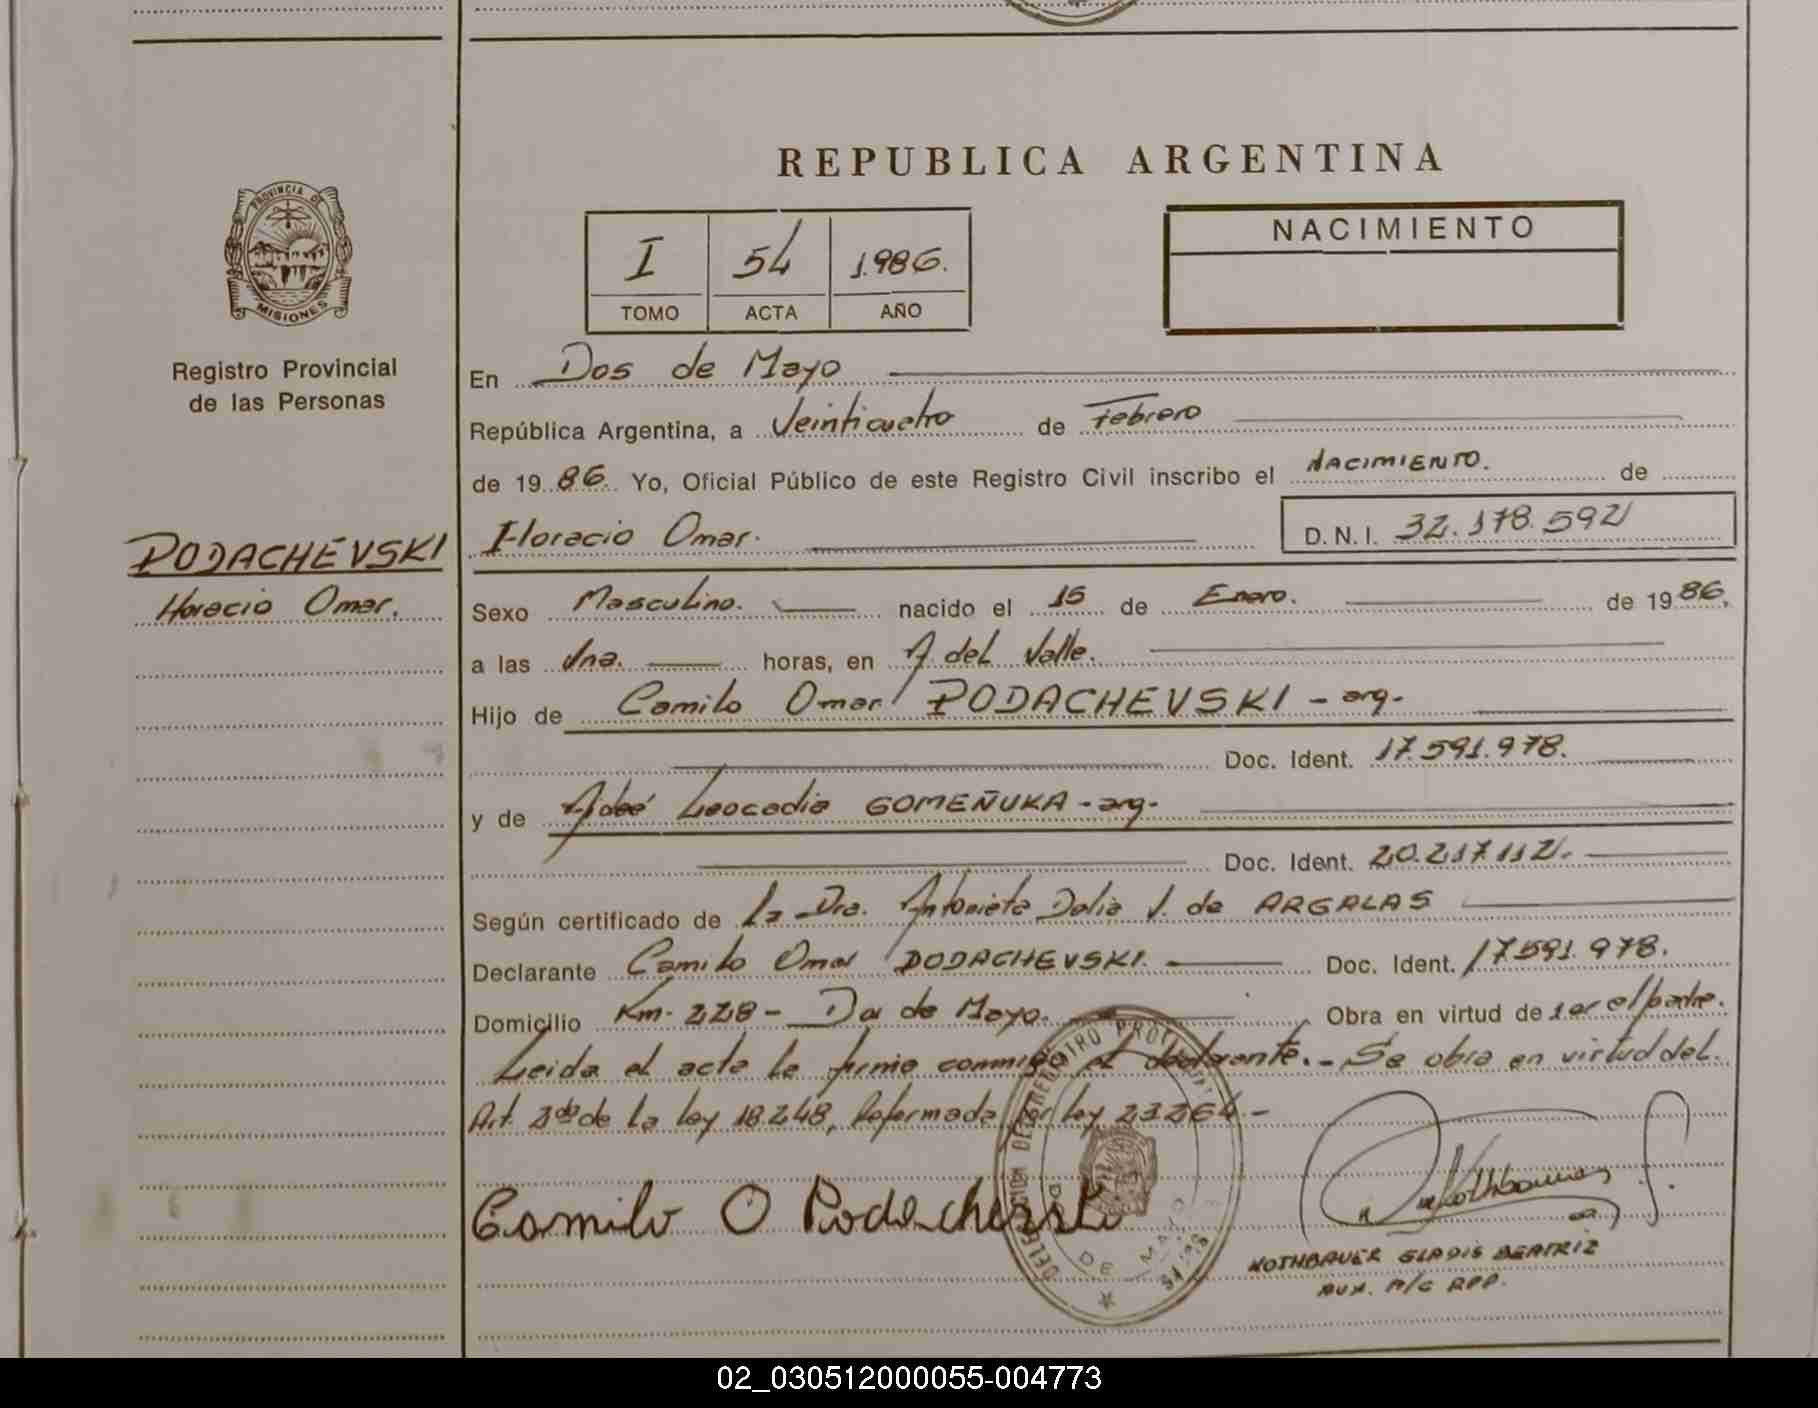 REPUBLICA ARGENTINA
PROVINCIA DE
MISIONES
Registro Provincial
de las Personas
PODACHEVSKI
Horacio Omar.
I 54 1.986.
TOMO ACTA AÑO
NACIMIENTO
En Dos de Mayo
República Argentina, a Veinticuatro de Febrero
de 19 86. Yo, Oficial Público de este Registro Civil inscribo el NACIMIENTO. de
Horacio Omar. D.N.I. 32.178.592
Sexo Masculino. nacido el 15 de Enero. de 19 86.
a las Una. horas, en A. del Valle.
Hijo de Camilo Omar PODACHEVSKI - arg.-
Doc. Ident. 17.591.978.
y de Leocadia GOMEÑUKA - arg-
Doc. Ident. 20.217.112.
Según certificado de La Dra. Antonieta Dalia V. de ARGALAS
Declarante Camilo Omar PODACHEVSKI. Doc. Ident. 17.591.978.
Domicilio Km. 228 - Dos de Mayo. Obra en virtud de ser el padre.
Leida el acta la firma conmigo el declarante. - Se obra en virtud del.
Art. 2do de la Ley 18.248, Reformada por Ley 23264 -
Camilo O Podachevski
DELEGACION DEL REGISTRO
DE MAYO
NOTHBAUER GLADIS BEATRIZ
AUX. A/C RPP.
02_030512000055-004773